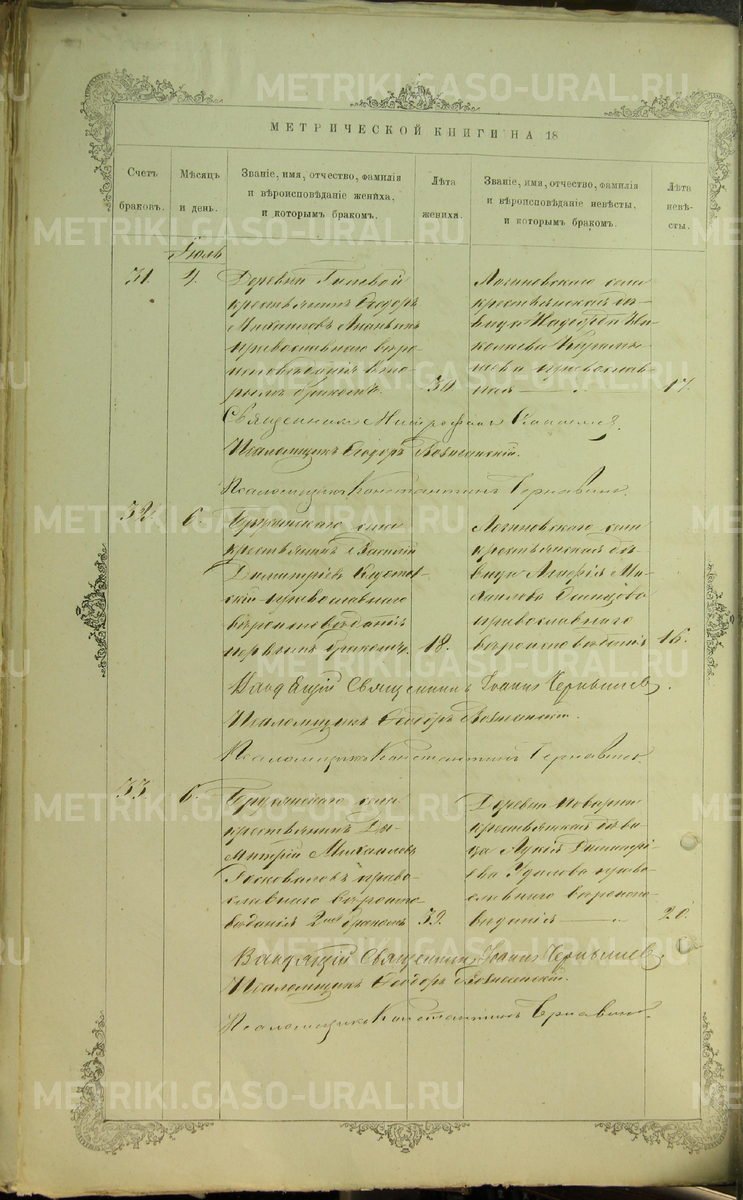 METRIKI.GASO-URAL.RU
МЕТРИЧЕСКОЙ КНИГИ НА 18
Счетъ браковъ.
Мѣсяцъ и день.
Званіе, имя, отчество, фамилія и вѣроисповѣданіе жениха, и которымъ бракомъ.
Лѣта жениха.
Званіе, имя, отчество, фамилія и вѣроисповѣданіе невѣсты, и которымъ бракомъ.
Лѣта невѣсты.
Іюль
31.
4.
Деревни
крестьянинъ Ѳеодоръ
Михаиловъ Ананьинъ
православнаго вѣро
исповѣданія вто
рымъ бракомъ.
30.
Логиновскаго села
крестьянская дѣ
вица Надежда Ни
колаева
православ
ная
17.
Священникъ Митрофанъ
Псаломщикъ Ѳеодоръ Вознесенскій.
Псаломщикъ Константинъ Чернавинъ.
32.
6.
села
крестьянинъ Василій
Димитріевъ
православнаго
вѣроисповѣданія
первымъ бракомъ.
18.
Логиновскаго села
крестьянская дѣ
вица Ми
хаилова
православнаго
вѣроисповѣданія
16.
Священникъ Іоаннъ Чернышев.
Псаломщикъ Ѳеодоръ Вознесенскій.
Псаломщикъ Константинъ Чернавинъ.
33.
6.
села
крестьянинъ Ди
митрій Михаиловъ
право
славнаго вѣроиспо
вѣданія 2мъ бракомъ
39.
Деревни
крестьянская дѣви
ца Димитрі
ева Удалова право
славнаго вѣроиспо
вѣданія
20.
Священникъ Іоаннъ Чернышев.
Псаломщикъ Ѳеодоръ Вознесенскій.
Псаломщикъ Константинъ Чернавинъ.